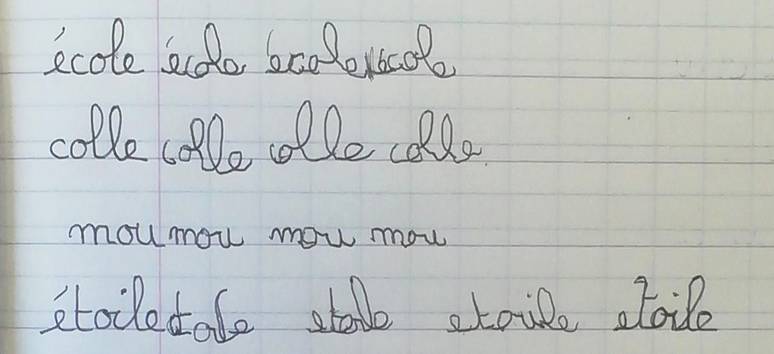 école école école école
colle colle colle colle
mou mou mou mou
étoile etoile etoile